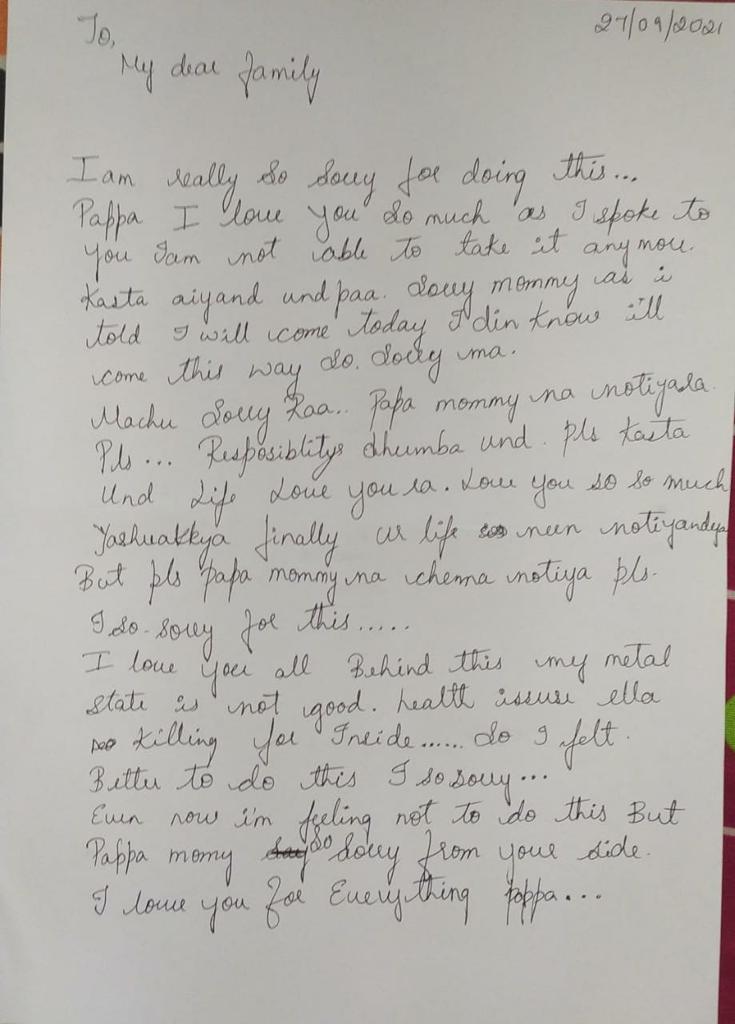 27/09/2021
To,
My dear family
I am really so sorry for doing this...
Pappa I love you so much as I spoke to
you Iam not able to take it anymore.
Kasta aiyand und paa. Sorry mommy as i
told I will come today I din know ill
come this way so. Sorry ma.
Machu Sorry Raa.. Papa mommy na notiyala.
Pls... Resposiblitys dhumba und. pls Kasta
Und life Love you ra. Love you so so much
Yashuakkya finally ur life neen notiyandya
But pls papa mommy na chenna notiya pls.
I so. sorry for this.....
I love you all Behind this my metal
state is not good. health issuse ella
killing for Inside...... So I felt.
Better to do this I so sorry...
Even now i'm feeling not to do this But
Pappa momy so Sorry from your side.
I love you for Everything pappa...